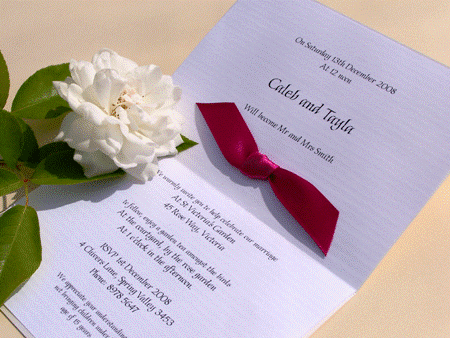 On Saturday 13th December 2008
At 12 noon
Caleb and Tayla
Will become Mr and Mrs Smith
We warmly invite you to help celebrate our marriage
At St Victoria's Garden
45 Rose Way, Victoria
To follow, enjoy a garden love amongst the birds
At the courtyard, by the rose garden
At 1 o'clock in the afternoon.
RSVP 1st December 2008
4 Clovers Lane, Spring Valley 3453
Phone: 8978 5647
We appreciate your understanding
not bringing children under
age of 15 years.